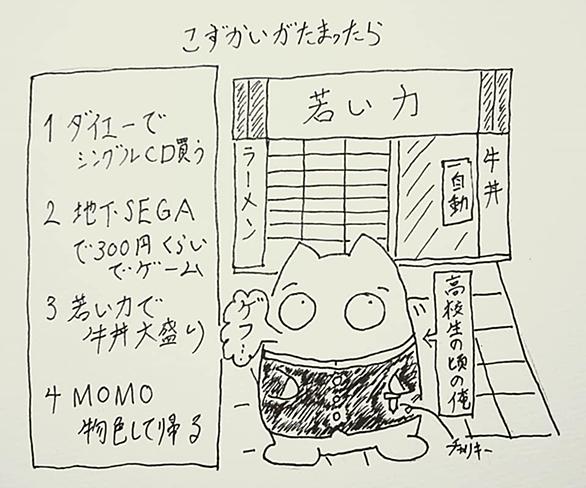 こずかいがたまったら
1 ダイエーで
シングルCD買う
2 地下SEGA
で300円くらい
でゲーム
3 若い力で
牛丼大盛り
4 MOMO
物色して帰る
若い力
ラーメン
自動
牛丼
ゲフ…
高校生の頃の俺
チャリキー